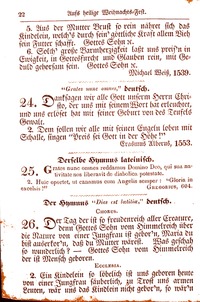 22 Aufs heilige Weihnachts-Fest.
5. Aus der Mutter Brust so rein nähret sich das
Kindelein, welch's durch sein' göttliche Kraft allem Vieh
sein Futter schafft. Gottes Sohn ꝛc.
6. Solch' große Barmherzigkeit laßt uns preis'n in
Ewigkeit, in Gottesfurcht und Glauben rein, mit Ge-
duld gehorsam sein. Gottes Sohn ꝛc.
Michael Weiß, 1539.
"Grates nunc omnes," deutsch.
24. Danksagen wir alle Gott unserm Herrn Chri-
sto, der uns mit seinem Wort hat erleuchtet,
und uns erlöset hat mit seiner Geburt von des Teufels
Gewalt.
2. Dem sollen wir alle mit seinen Engeln loben mit
Schalle, singen "Preis sei Gott in der Höhe!"
Erasmus Alberus, 1553.
Derselbe Hymnus lateinisch.
25. Grates nunc omnes reddamus Domino Deo, qui sua na-
tivitate nos liberavit de diabolica potestate.
2. Huic oportet, ut canamus cum Angelis semper: "Gloria in
excelsis!" Gregorius, 604.
Der Hymnus "Dies est laetitiae," deutsch.
Chorus.
26. Der Tag der ist so freudenreich aller Creature,
denn Gottes Sohn vom Himmelreich über
die Nature von einer Jungfrau ist gebor'n, Maria du
bist auserkor'n, daß du Mutter wärest. Was geschah
so wunderlich? — Gottes Sohn vom Himmelreich
der ist Mensch geboren.
Ecclesia.
2. Ein Kindelein so löbelich ist uns geboren heute
von einer Jungfrau säuberlich, zu Trost uns armen
Leuten, wär uns das Kindlein nicht gebor'n, so wär'n